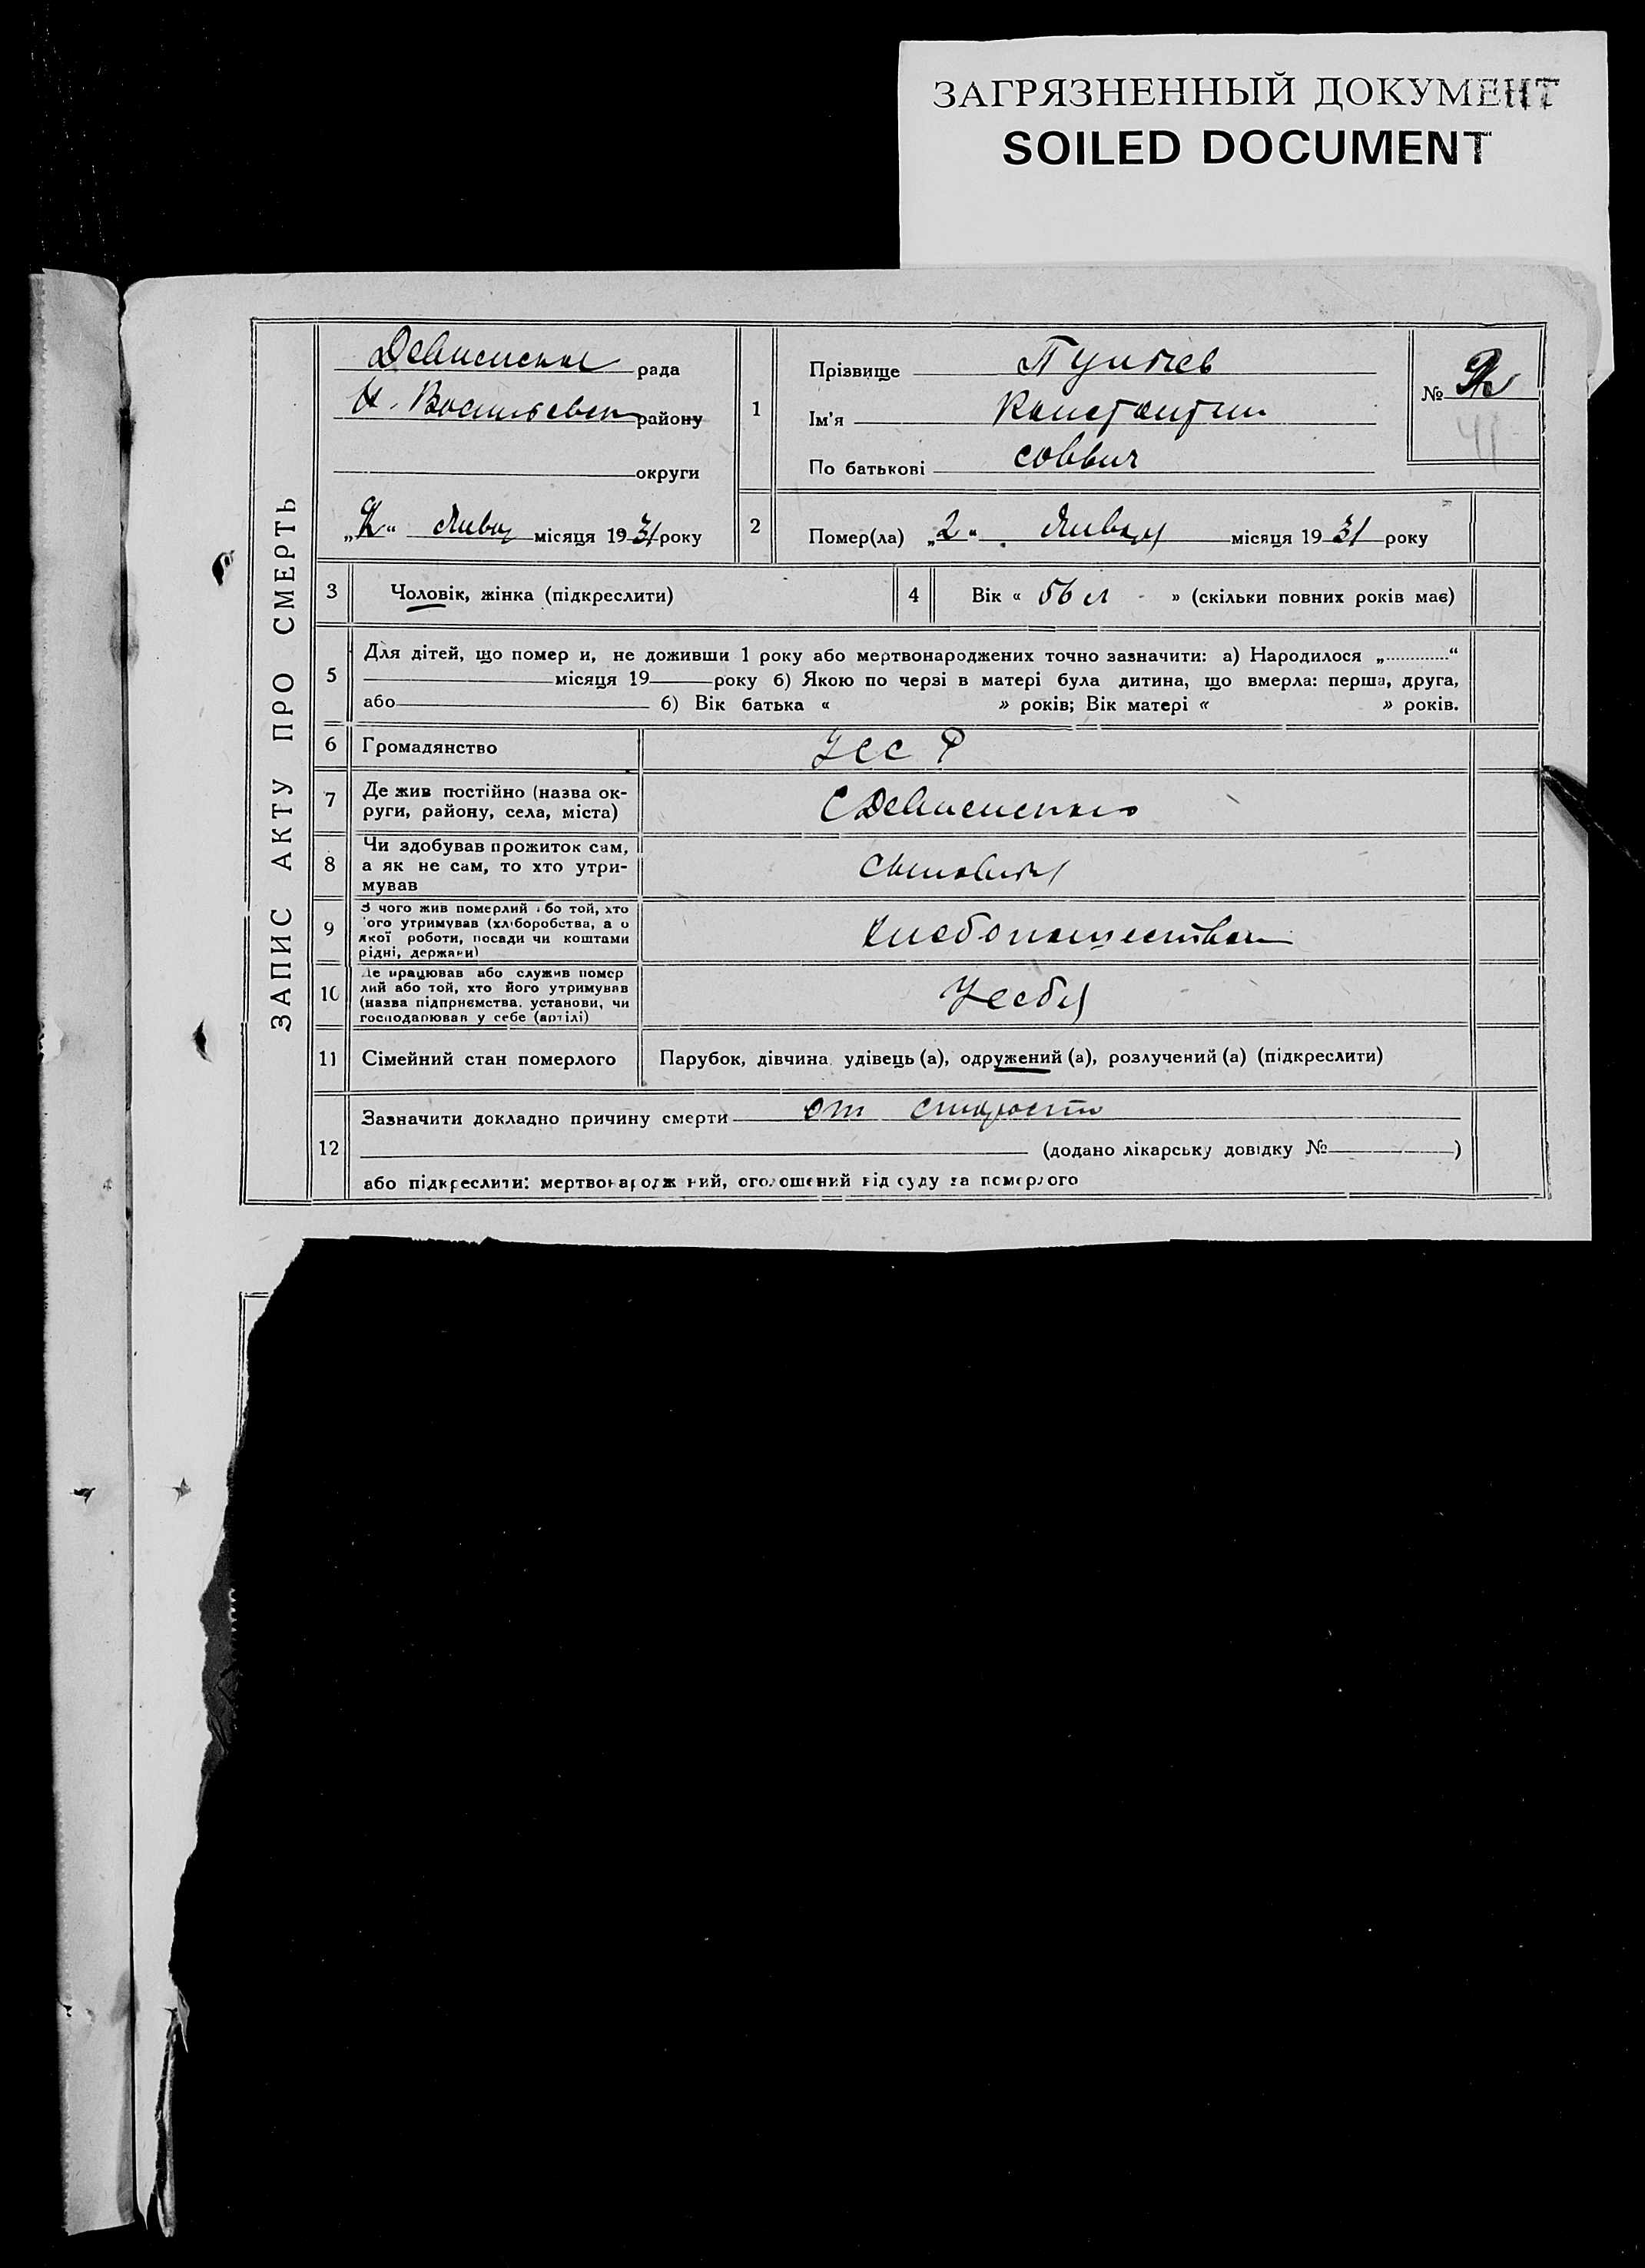 ЗАГРЯЗНЕННЫЙ ДОКУМЕНТ
SOILED DOCUMENT
ЗАПИС АКТУ ПРО СМЕРТЬ
рада
району
округи
місяця 1931 року
1
Прізвище
Ім'я Константин
По батькові Соввич
№
2
Помер(ла) „2“ Января місяця 1931 року
3
Чоловік, жінка (підкреслити)
4
Вік « 56 л » (скільки повних років має)
5
Для дітей, що помер и, не доживши 1 року або мертвонароджених точно зазначити: а) Народилося „............“
місяця 19 року б) Якою по черзі в матері була дитина, що вмерла: перша, друга,
або б) Вік батька « » років; Вік матері « » років.
6
Громадянство
УССР
7
Де жив постійно (назва ок-
руги, району, села, міста)
8
Чи здобував прожиток сам,
а як не сам, то хто утри-
мував
9
З чого жив померлий або той, хто
ого утримував (хліборобства, а о
якої роботи, посади чи коштами
рідні, держави)
Хлебопашеством
10
Де працював або служив помер
лий або той, хто його утримував
(назва підприємства, установи, чи
господарював у себе (артілі)
У себя
11
Сімейний стан померлого
Парубок, дівчина удівець (а), одружений (а), розлучений (а) (підкреслити)
12
Зазначити докладно причину смерти от старости
(додано лікарську довідку № )
або підкреслити: мертвонародж ний, оголошений від суду за померлого